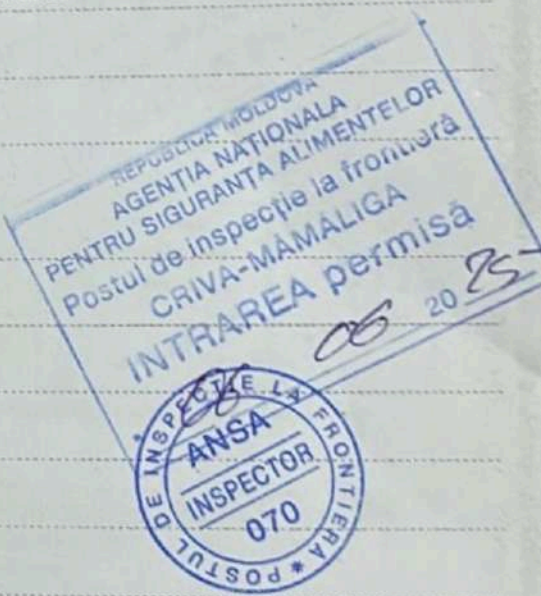 REPUBLICA MOLDOVA
AGENȚIA NAȚIONALA
PENTRU SIGURANȚA ALIMENTELOR
Postul de inspecție la frontieră
CRIVA-MAMALIGA
INTRAREA permisă
06 2025
POSTUL DE INSPECȚIE LA FRONTIERA *
ANSA
INSPECTOR
070